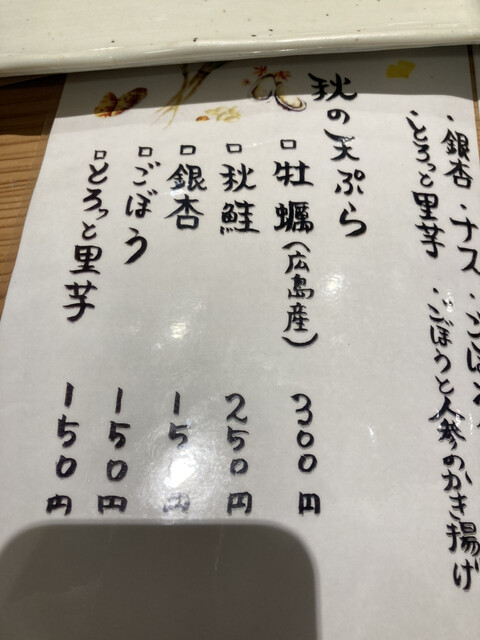 ・銀杏 ・ナス ・ごぼう
・とろっと里芋 ・ごぼうと人参のかき揚げ
秋の天ぷら
□牡蠣(広島産) 300円
□秋鮭 250円
□銀杏 15 円
□ごぼう 150円
□とろっと里芋 150円